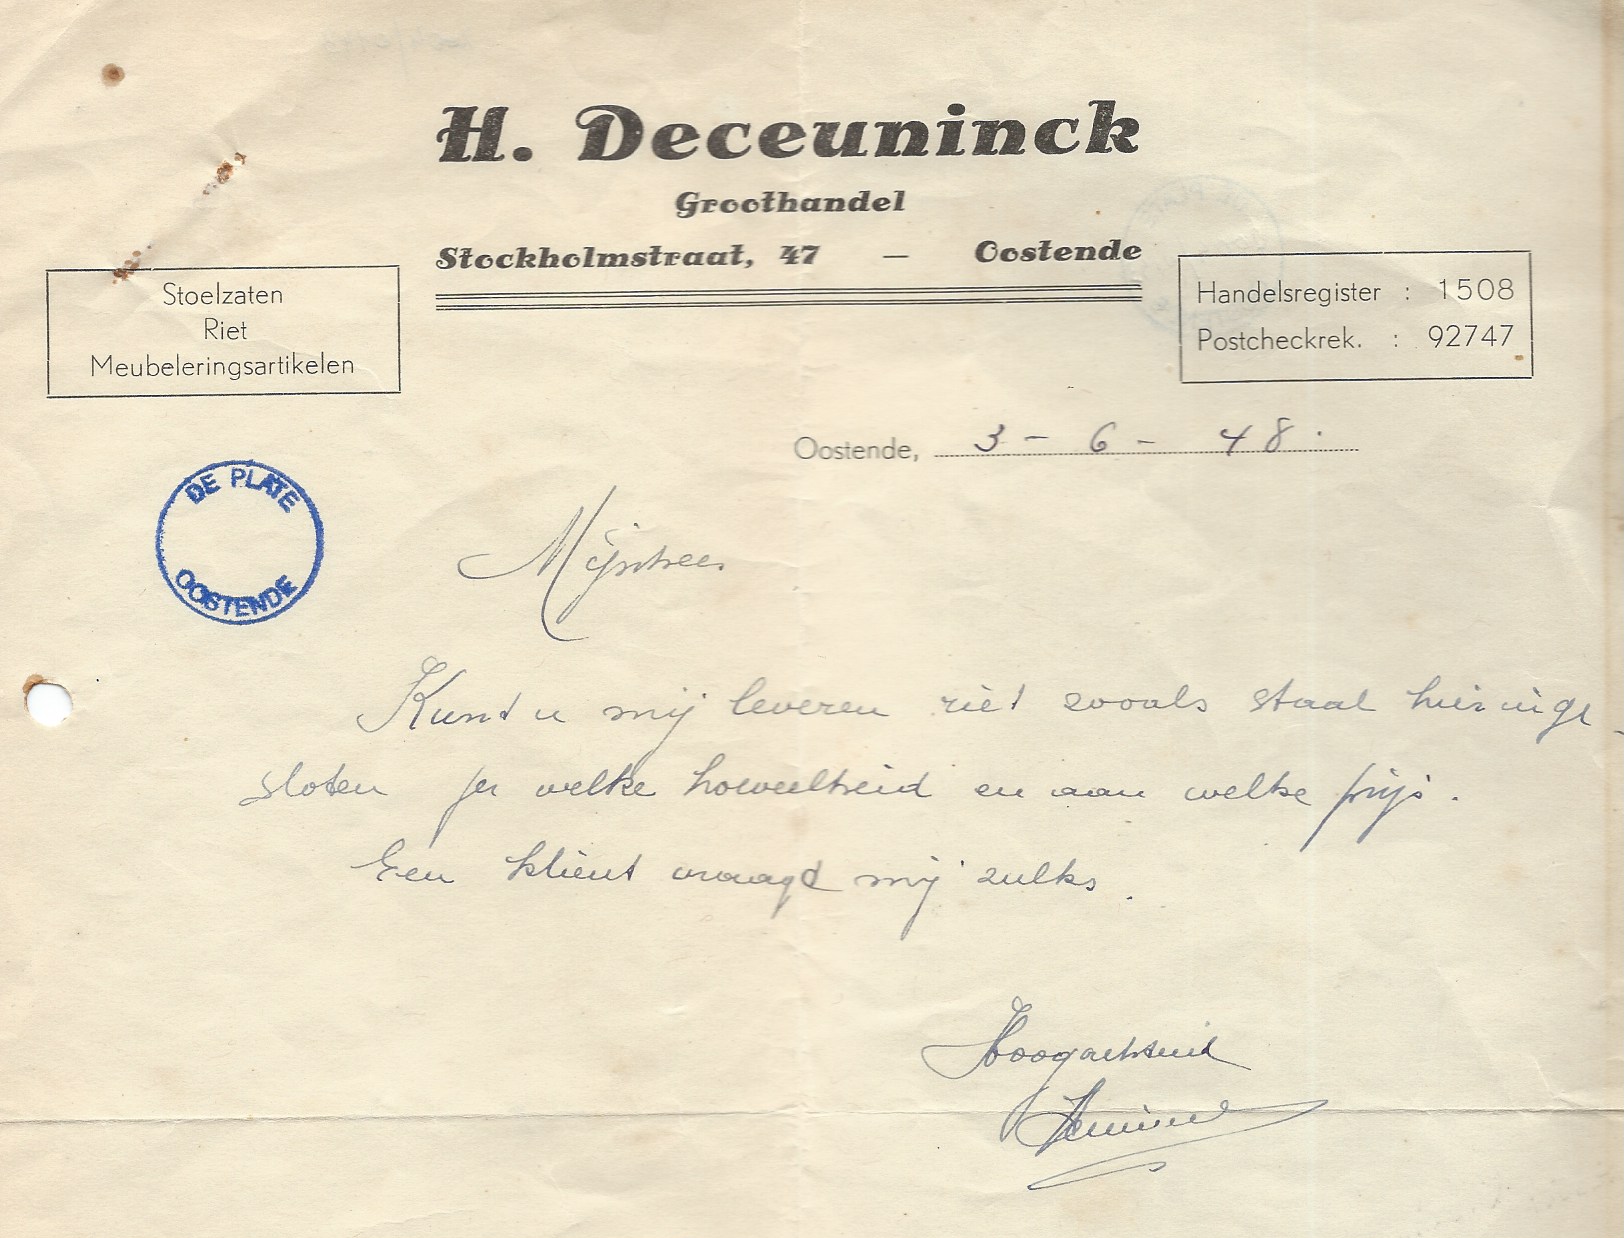 H. Deceuninck
Groothandel
Stockholmstraat, 47 — Oostende
Stoelzaten
Riet
Meubeleringsartikelen
Handelsregister : 1508
Postcheckrek. : 92747
Oostende, 3 - 6 - 48.
DE PLATE
OOSTENDE
Mijnheer
Kunt u mij leveren riet zooals staal hier inge-
sloten per welke hoeveelheid en aan welke prijs.
Een klient vraagd mij zulks.
Hoogachtend